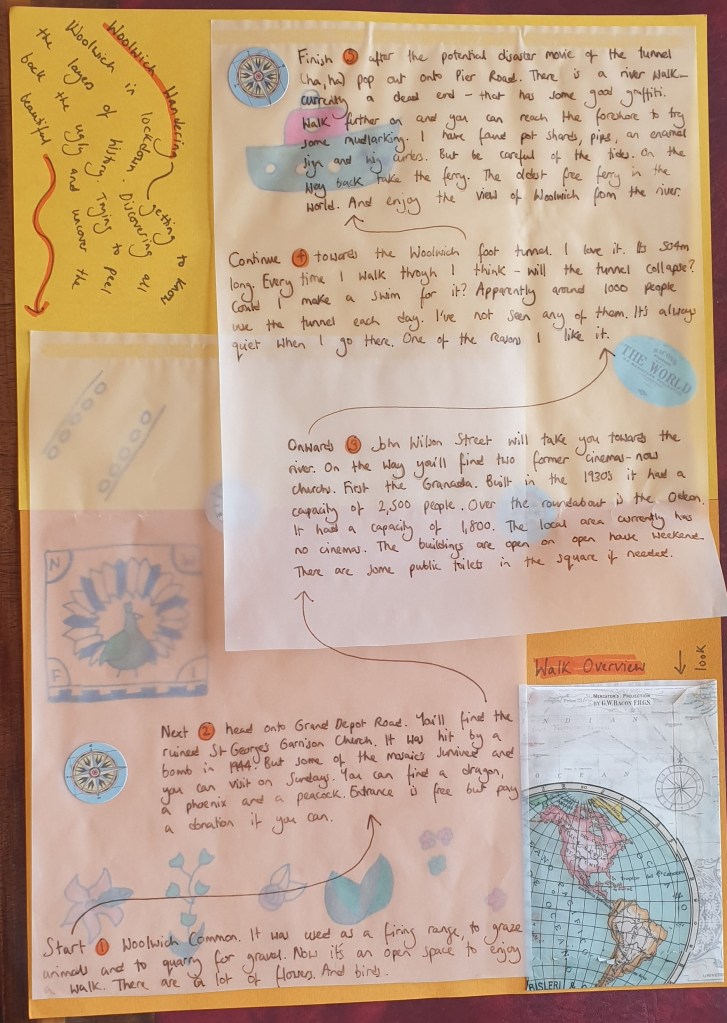 Woolwich Wandering - getting to know
Woolwich in lockdown. Discovering all
the layers of history. Trying to peel
back the ugly and uncover the
beautiful
Finish 5 after the potential disaster movie of the tunnel
(ha, ha) pop out onto Pier Road. There is a river walk -
currently a dead end - that has some good graffiti.
Walk further on and you can reach the foreshore to try
some mudlarking. I have found pot shards, pips, an enamel
sign and wig curlers. But be careful of the tides. On the
way back take the ferry. The oldest free ferry in the
world. And enjoy the view of Woolwich from the river.
Continue 4 towards the Woolwich foot tunnel. I love it. Its 504m
long. Every time I walk through I think - will the tunnel collapse?
Could I make a swim for it? Apparently around 1000 people
use the tunnel each day. I've not seen any of them. It's always
quiet when I go there. One of the reasons I like it.
THE WORLD
Onwards 3 John Wilson Street will take you towards the
river. On the way you'll find two former cinemas - now
churchs. First the Granada. Built in the 1930s it had a
capacity of 2,500 people. Over the roundabout is the Odeon.
It had a capacity of 1,800. The local area currently has
no cinemas. The buildings are open on open house weekend.
There are some public toilets in the square if needed.
Walk Overview
look
MERCATOR'S PROJECTION
BY G.W. BACON F.R.G.S
INDIAN
OCEAN
Next 2 head onto Grand Depot Road. You'll find the
ruined St George's Garrison Church. It was hit by a
bomb in 1944. But some of the mosaics survived and
you can visit on Sundays. You can find a dragon,
a phoenix and a peacock. Entrance is free but pay
a donation if you can.
Start 1 Woolwich Common. It was used as a firing range, to graze
animals and to quarry for gravel. Now it's an open space to enjoy
a walk. There are a lot of flowers. And birds.
BRISLERI